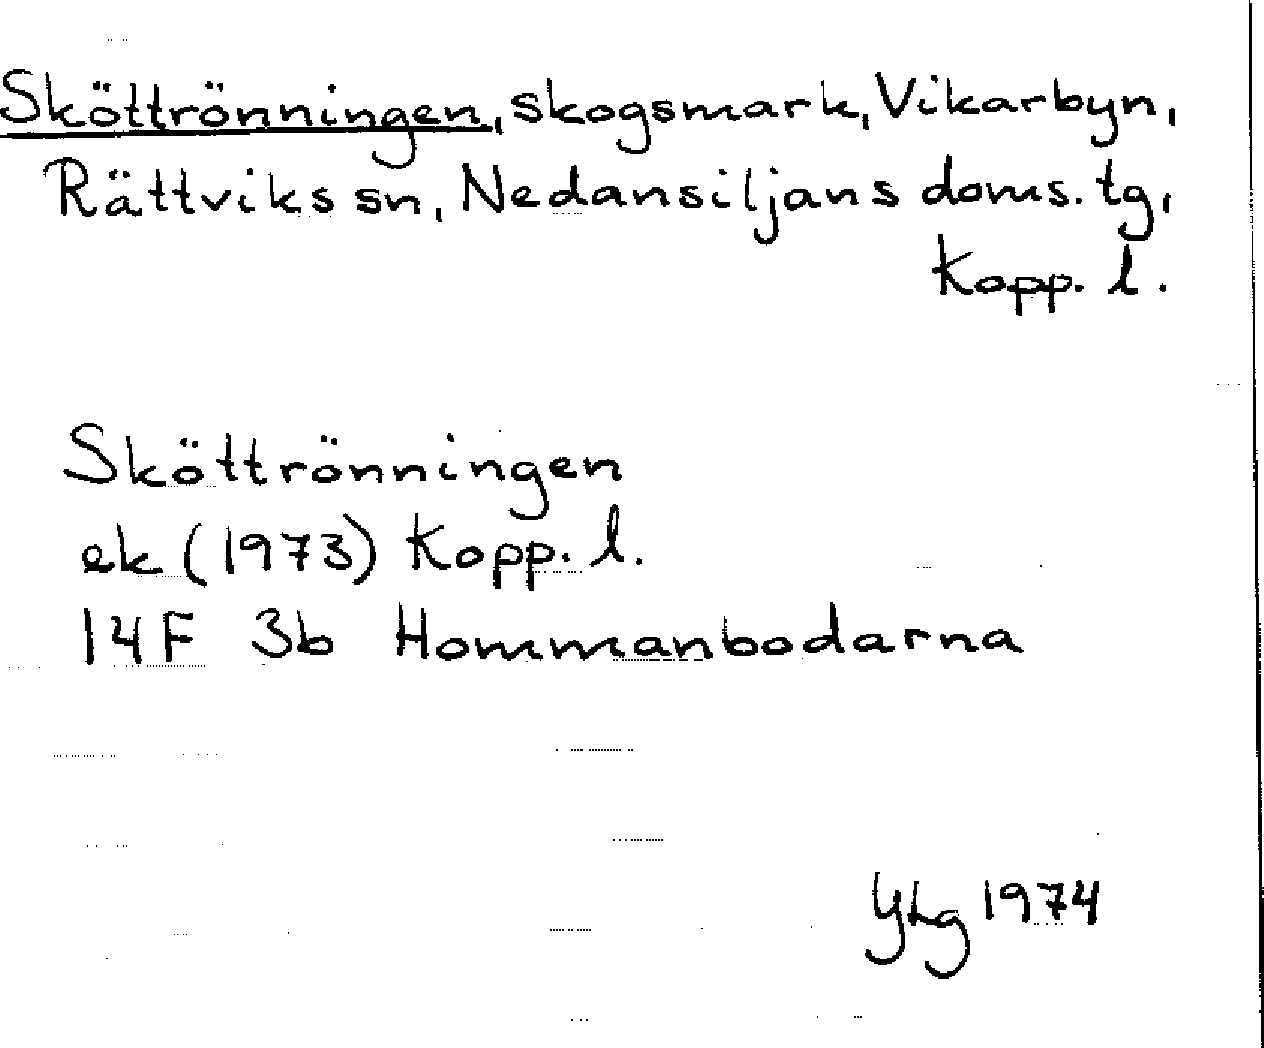 Sköttrönningen, skogsmark, Vikarbyn,
Rättviks sn, Nedansiljans doms. tg,
Kopp. l.
Sköttrönningen
ek (1973) Kopp. l.
14F 3b Hommanbodarna
YLg 1974